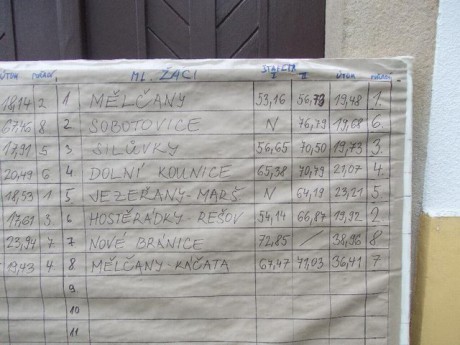 ÚTOK POŘADÍ ML. ŽÁCI ŠTAFETA I II ÚTOK POŘADÍ
18,14 2 1 MĚLČANY 53,16 56,73 19,48 1.
67,46 8 2 SOBOTOVICE N 76,79 19,68 6.
17,91 5 3 SILŮVKY 56,65 70,50 19,73 3.
20,49 6 4 DOLNÍ KOUNICE 65,38 70,79 21,07 4.
18,53 1 5 JEZEŘANY-MARŠ N 64,19 23,21 5.
17,61 3 6 HOSTĚRÁDKY REŠOV 54,14 66,87 19,92 2.
23,94 7 7 NOVÉ BRÁNICE 72,85 / 38,96 8
19,43 4 8 MĚLČANY-KAČATA 67,47 71,03 36,41 7.
9.
10
11